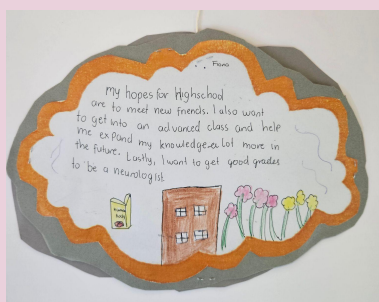 Fiona
my hopes for Highschool
are to meet new friends. I also want
to get into an advanced class and help
me expand my knowledge a lot more in
the future. Lastly, I want to get good grades
to be a neurologist
human
body